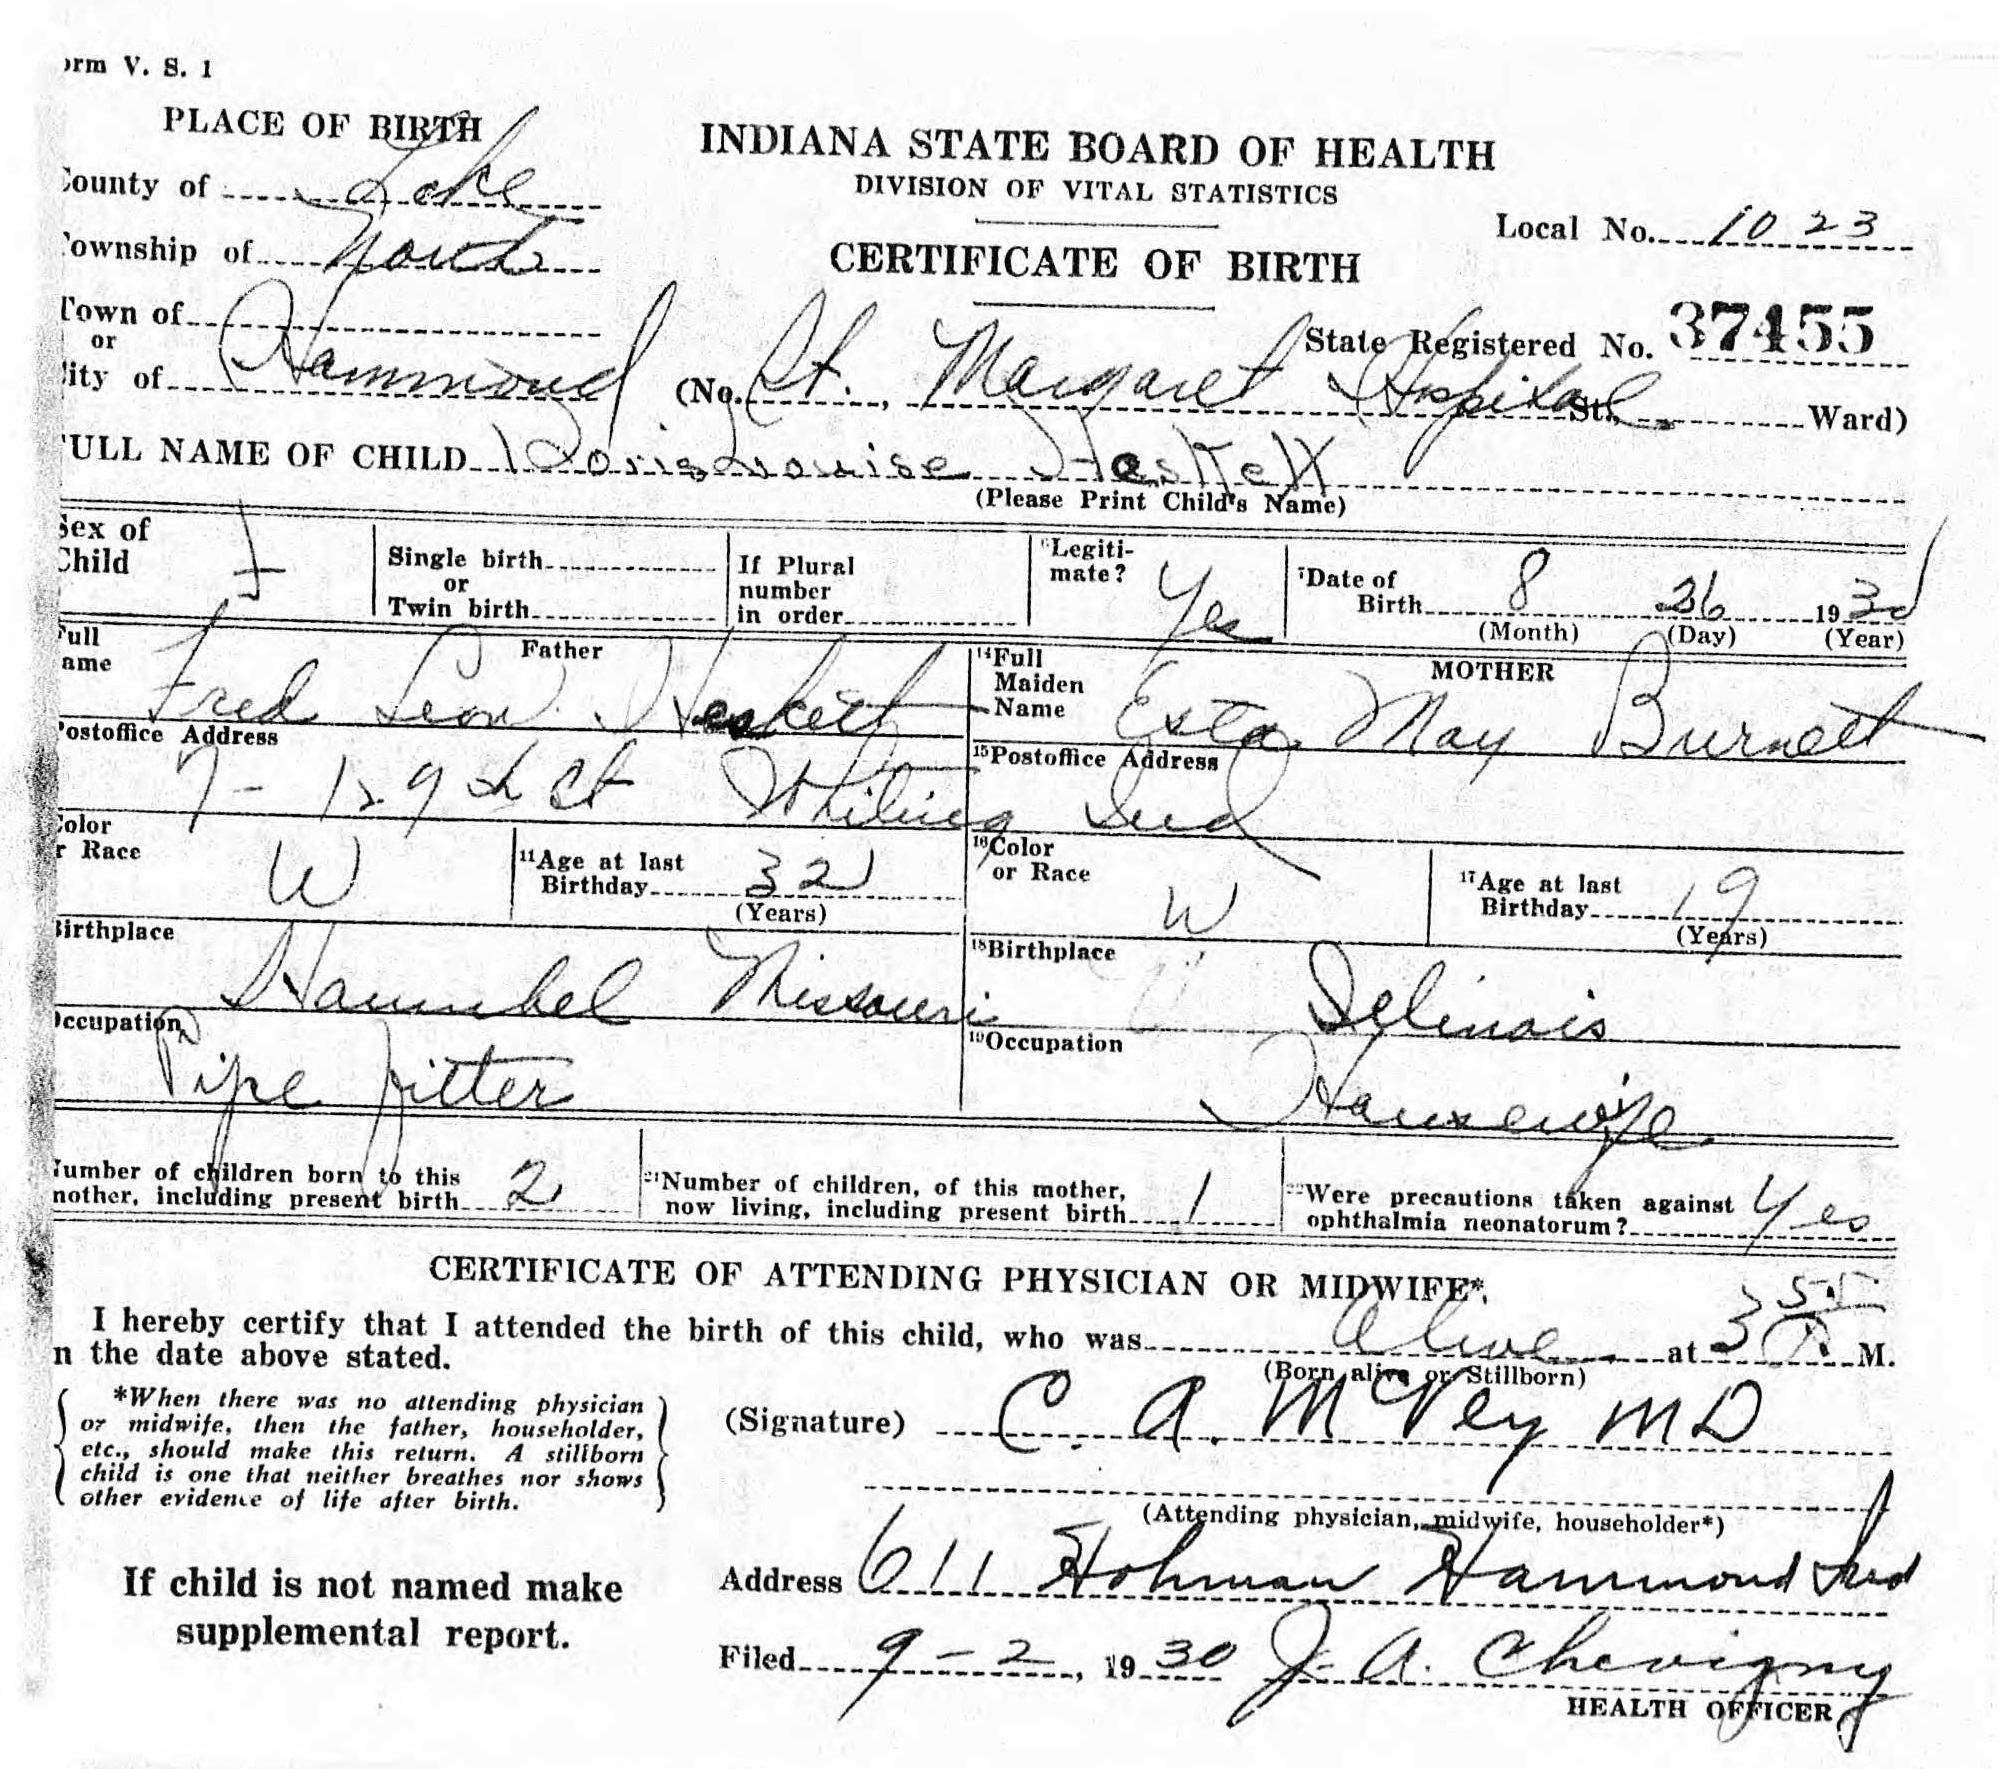 orm V. S. 1
PLACE OF BIRTH
INDIANA STATE BOARD OF HEALTH
DIVISION OF VITAL STATISTICS
ounty of Lake
Local No. 1023
ownship of North
CERTIFICATE OF BIRTH
Town of
or
State Registered No. 37455
ity of Hammond (No. St., Margaret Hospital St., Ward)
ULL NAME OF CHILD Doris Louise Heskett
(Please Print Child's Name)
Sex of Child f
Single birth or Twin birth
If Plural number in order
6Legiti-mate? Yes
7Date of Birth 8 26 1930
(Month) (Day) (Year)
Father
Full ame Fred Leon Heskett
MOTHER
14Full Maiden Name Esta May Burnett
Postoffice Address
15Postoffice Address
7- 129th St Whiting Ind
Color r Race W
11Age at last Birthday 32
(Years)
16Color or Race W
17Age at last Birthday 19
(Years)
Birthplace Hannibel Missouri
18Birthplace Illinois
Occupation Pipe fitter
19Occupation Housewife
Number of children born to this mother, including present birth 2
21Number of children, of this mother, now living, including present birth 1
22Were precautions taken against ophthalmia neonatorum? Yes
CERTIFICATE OF ATTENDING PHYSICIAN OR MIDWIFE*.
I hereby certify that I attended the birth of this child, who was alive at 3 55 M.
(Born alive or Stillborn)
n the date above stated.
*When there was no attending physician
or midwife, then the father, householder,
etc., should make this return. A stillborn
child is one that neither breathes nor shows
other evidence of life after birth.
(Signature) C. A. McVey MD
(Attending physician, midwife, householder*)
If child is not named make
supplemental report.
Address 611 Hohman Hammond Ind
Filed 9-2, 1930 J. A. Chevigny
HEALTH OFFICER